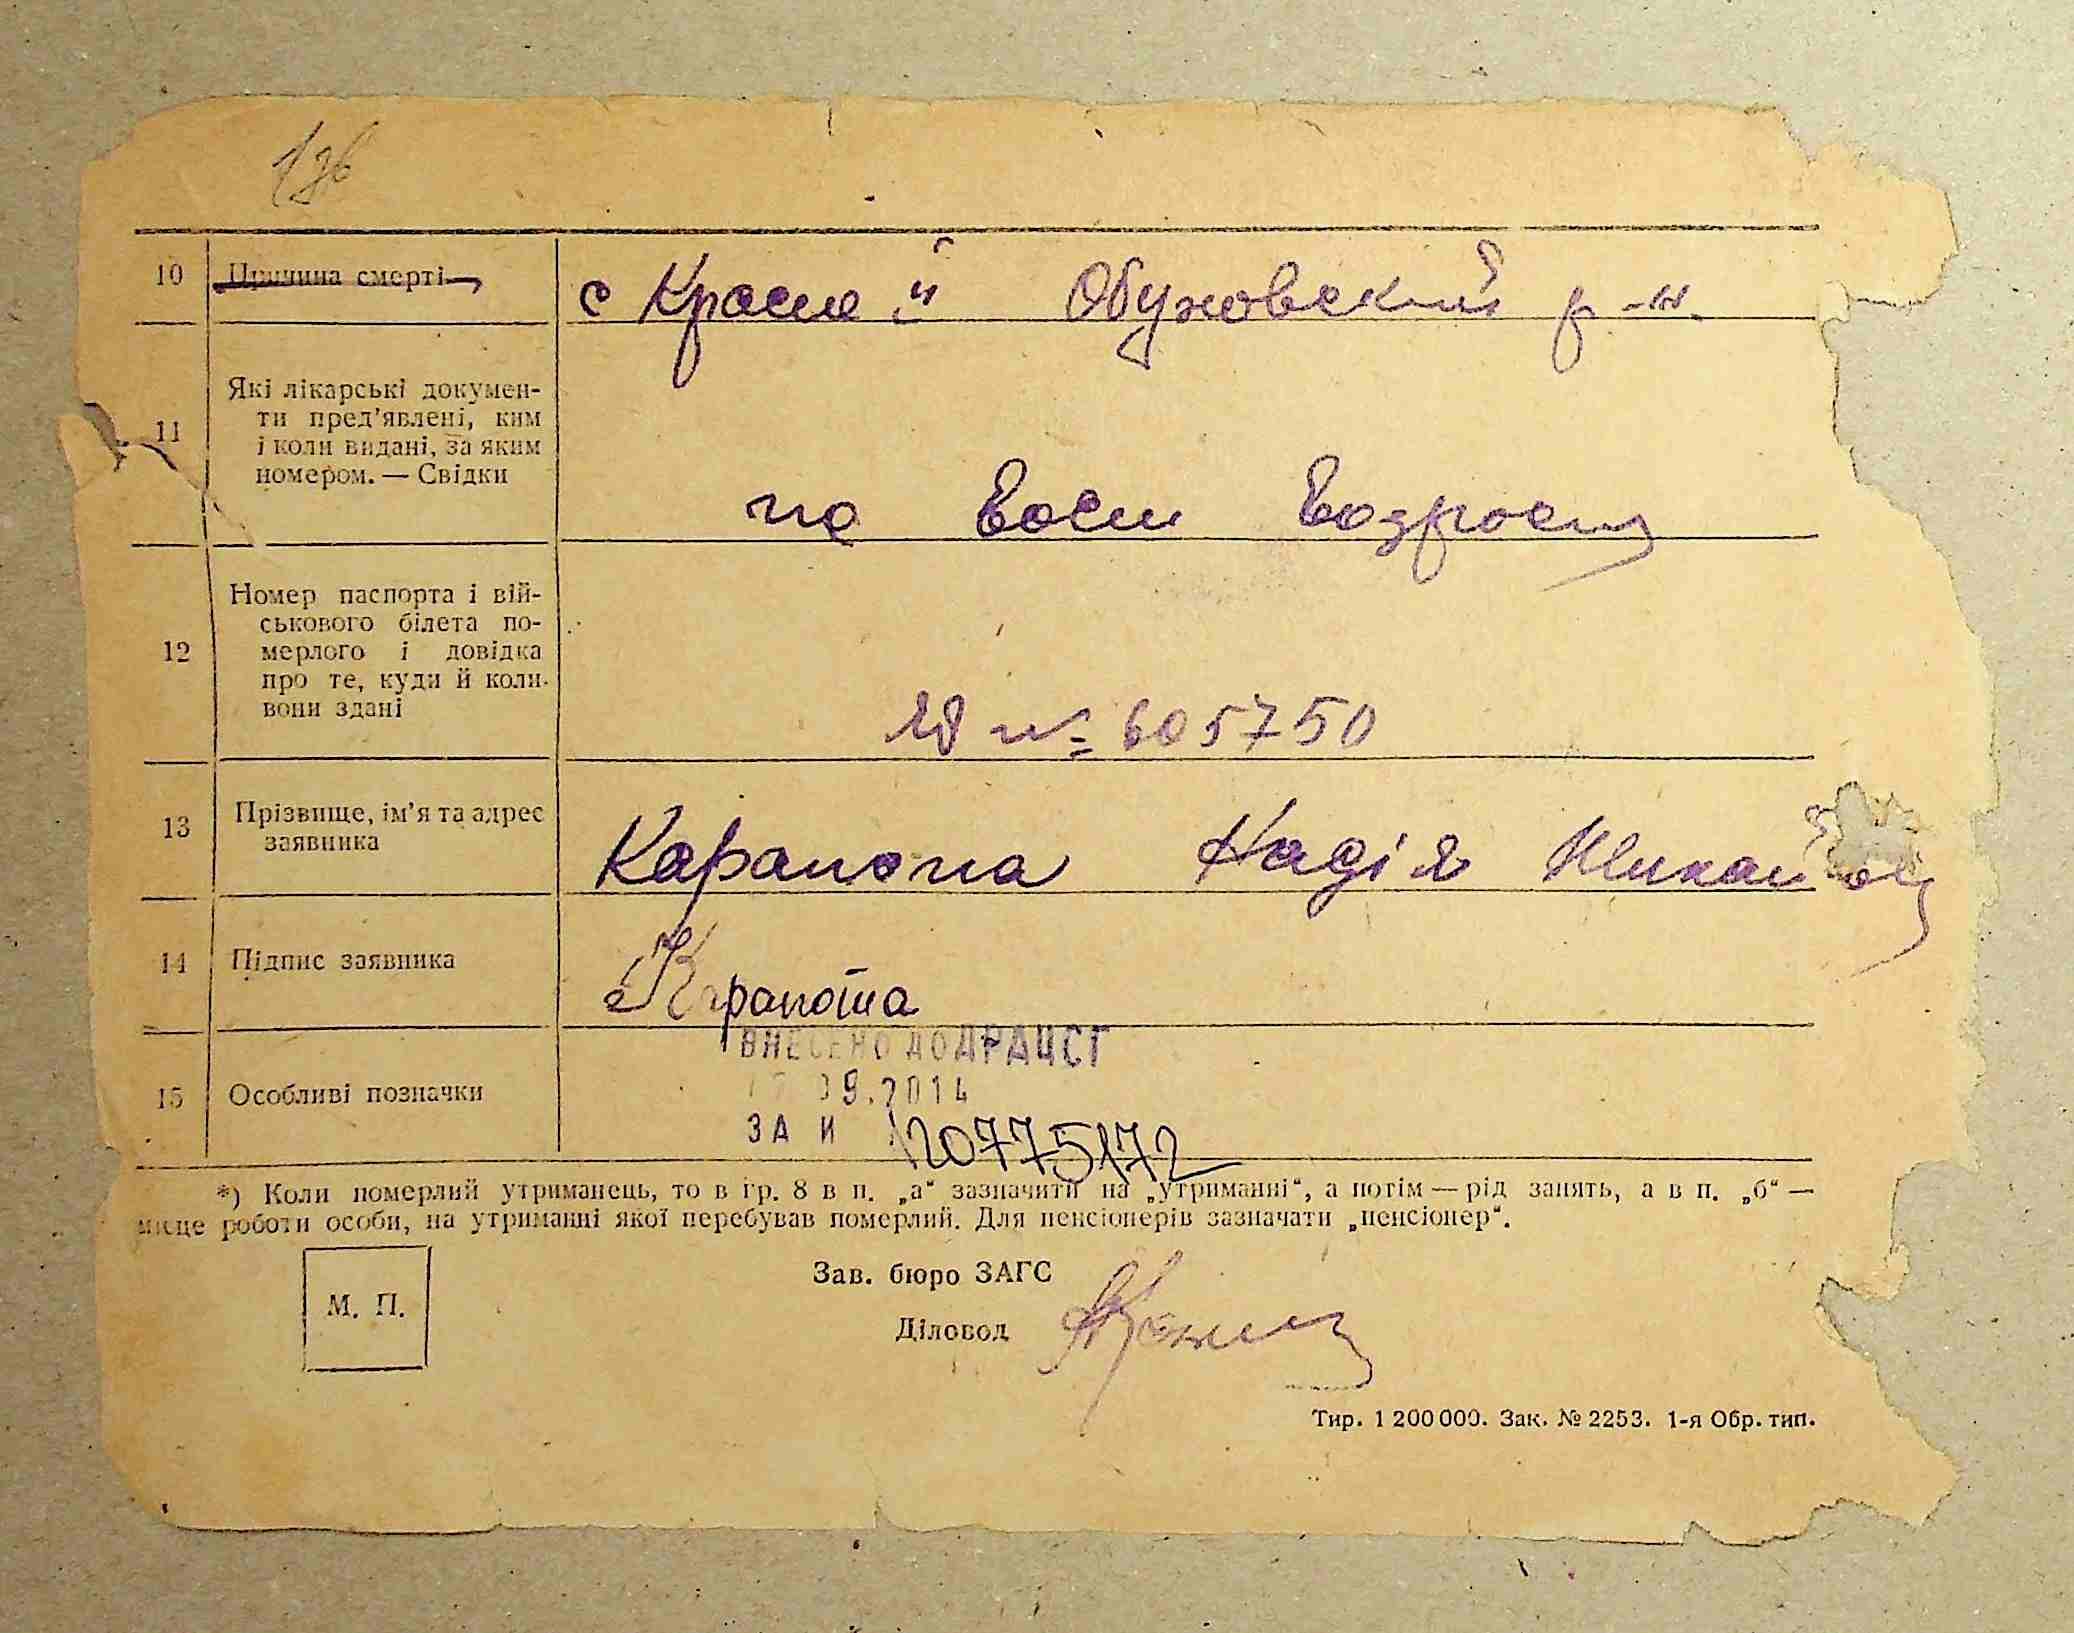 10 Причина смерті с Красне Обуховский р-н.
11 Які лікарські докумен-
ти пред'явлені, ким
і коли видані, за яким
номером. — Свідки
по возрасту
12 Номер паспорта і вій-
ськового білета по-
мерлого і довідка
про те, куди й коли
вони здані
№ 605750
13 Прізвище, ім'я та адрес
заявника
Карапота Надія
14 Підпис заявника
Карапота
ВНЕСЕНО ДО ДРАЦСГ
09.2014
15 Особливі позначки
ЗА 20775172
*) Коли померлий утриманець, то в гр. 8 в п. „а“ зазначити на „утриманні“, а потім — рід занять, а в п. „б“ —
місце роботи особи, на утриманні якої перебував померлий. Для пенсіонерів зазначати „пенсіонер“.
Зав. бюро ЗАГС
М. П.
Діловод
Тир. 1 200 000. Зак. № 2253. 1-я Обр. тип.